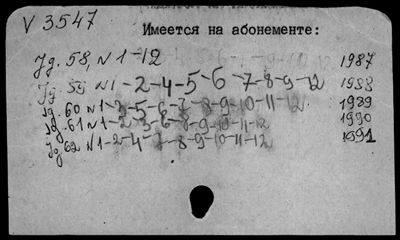 V 3547
Имеется на абонементе:
Jg. 58, N 1-12 1987
Jg. 59 N 1-2-4-5-6-7-8-9-12 1988
Jg. 60 N 1-2-5-6-7-8-9-10-11-12 1989
Jg. 61 N 1-2-3-6-8-9-10-11-12 1990
Jg 62 N 1-2-4-7-8-9-10-11-12 1991